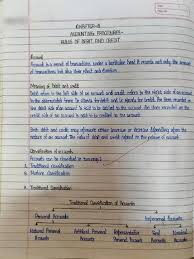 CHAPTER-III
ACCOUNTING PROCEDURES-
RULES OF DEBIT AND CREDIT
Account
Account is a record of transactions under a particular head. It records not only the amount
of transactions but also their effect and direction.
Meaning of Debit and credit
Debit refers to the left side of an account and credit refers to the right side of an account.
In the abbreviated form Dr. stands for debit and Cr. stands for credit. An item recorded on
the debit side of an account is said to be debited to the account and item recorded on the
credit side of an account is said to be credited to the account.
Both debit and credit may represent either increase or decrease depending upon the
nature of an account.
Classification of accounts
Accounts can be classified in two ways:
1. Traditional Classification
2. Modern Classification
1. Traditional Classification
Traditional Classification of Accounts
Personal Accounts Impersonal Accounts
Natural Personal Artificial Personal Representative Real Nominal
Accounts Accounts Personal Accounts Accounts Accounts